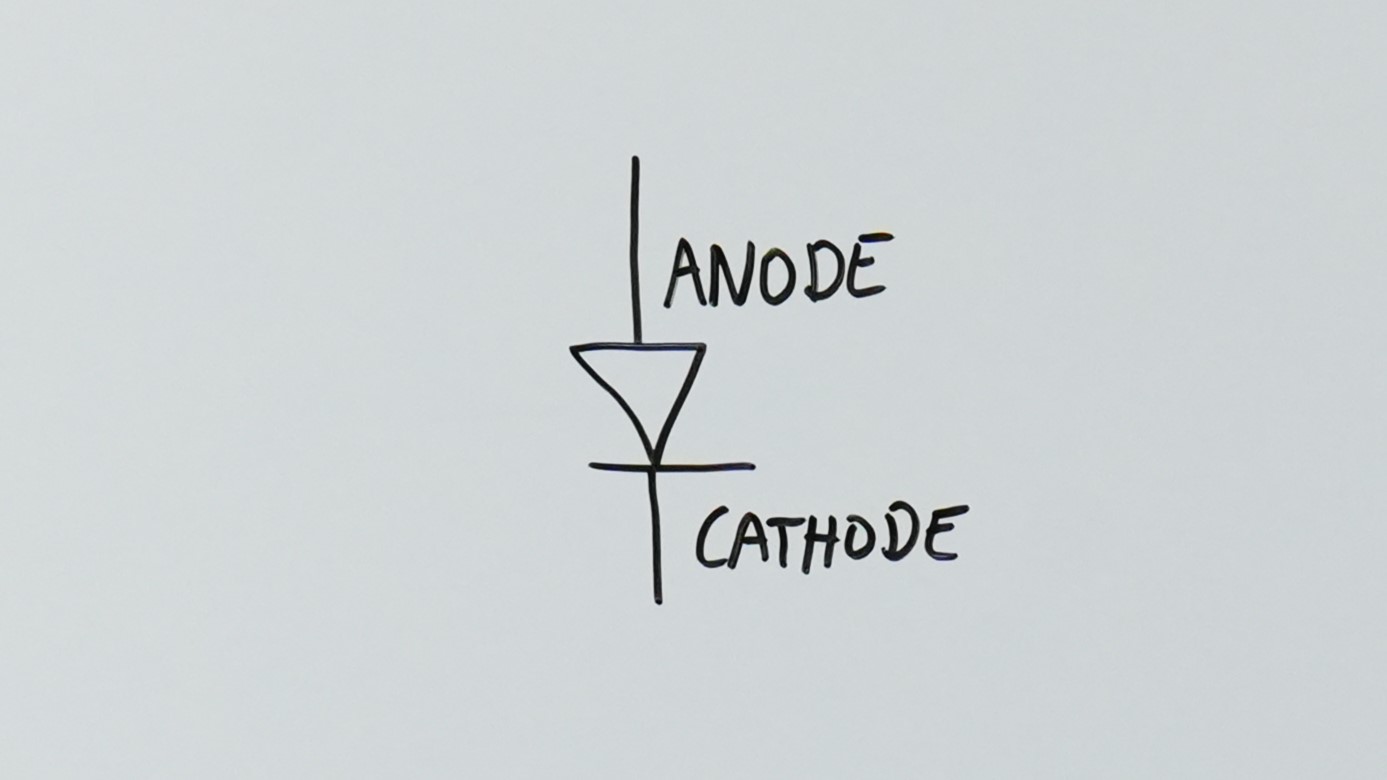 ANODE
CATHODE